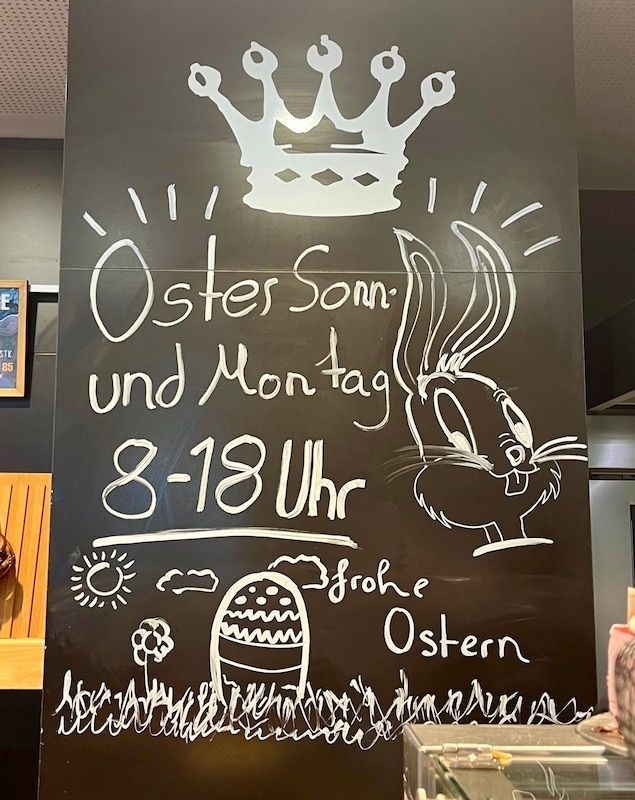 Oster Sonn-
und Montag
8-18 Uhr
frohe
Ostern
E
STK.
85